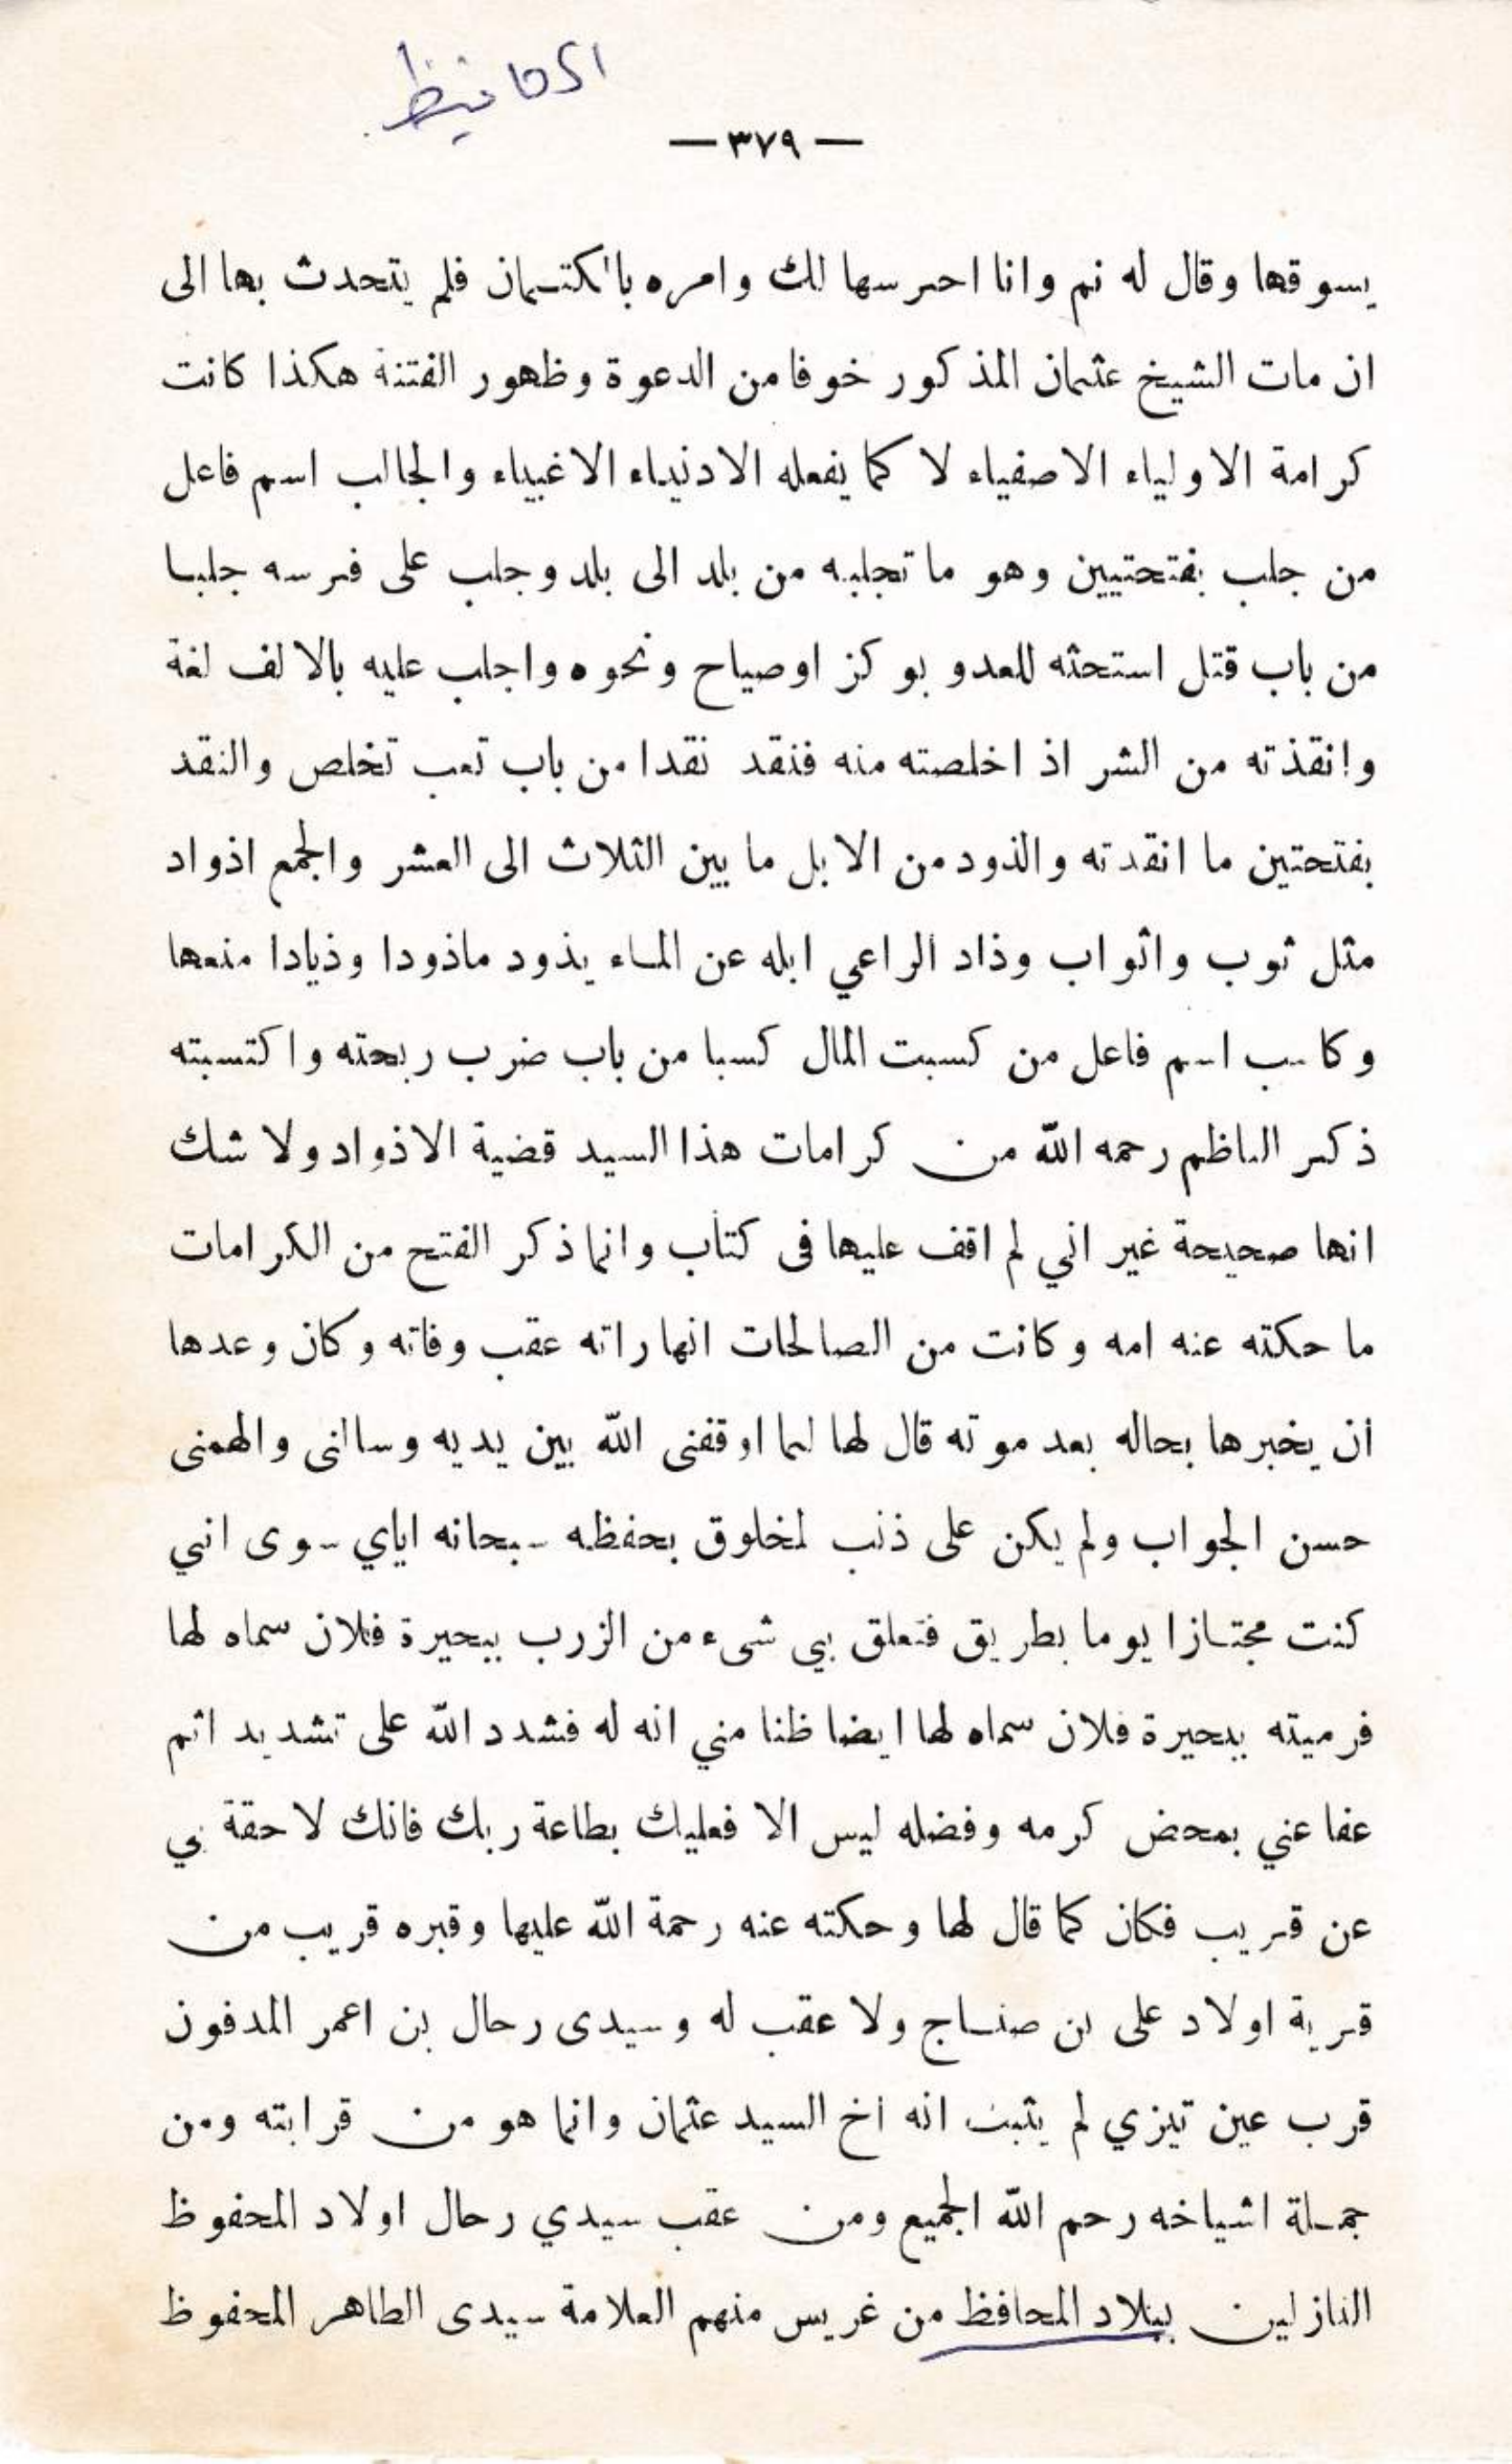 — ٣٧٩ —
يسوقها وقال له نم وانا احرسها لك وامره بالكتمان فلم يتحدث بها الى
ان مات الشيخ عثمان المذكور خوفا من الدعوة وظهور الفتنة هكذا كانت
كرامة الاولياء الاصفياء لا كما يفعله الادنياء الاغبياء والجالب اسم فاعل
من جلب بفتحتيين وهو ما تجلبه من بلد الى بلد وجلب على فرسه جلبا
من باب قتل استحثه للعدو بوكز اوصياح ونحوه واجلب عليه بالالف لغة
وانقذته من الشر اذ اخلصته منه فنقد نقدا من باب تعب تخلص والنقد
بفتحتين ما انقدته والذود من الابل ما بين الثلاث الى العشر والجمع اذواد
مثل ثوب واثواب وذاد الراعي ابله عن الماء يذود ماذودا وذيادا منعها
وكاسب اسم فاعل من كسبت المال كسبا من باب ضرب ربحته واكتسبته
ذكر الناظم رحمه الله من كرامات هذا السيد قضية الاذواد ولا شك
انها صحيحة غير اني لم اقف عليها فى كتاب وانما ذكر الفتح من الكرامات
ما حكته عنه امه وكانت من الصالحات انها راته عقب وفاته وكان وعدها
ان يخبرها بحاله بعد موته قال لها لما اوقفنى الله بين يديه وسالنى والهمنى
حسن الجواب ولم يكن على ذنب لمخلوق بحفظه سبحانه اياي سوى انني
كنت مجتازا يوما بطريق فتعلق بي شىء من الزرب ببحيرة فلان سماه لها
فرميته ببحيرة فلان سماه لها ايضا ظنا مني انه له فشدد الله على تشديد اثم
عفا عني بمحض كرمه وفضله ليس الا فعليك بطاعة ربك فانك لاحقة بي
عن قريب فكان كما قال لها وحكته عنه رحمة الله عليها وقبره قريب من
قرية اولاد على بن صنساج ولا عقب له وسيدى رحال بن اعمر المدفون
قرب عين تيزي لم يثبت انه اخ السيد عثمان وانما هو من قرابته ومن
جملة اشياخه رحم الله الجميع ومن عقب سيدي رحال اولاد المحفوظ
النازلين ببلاد المحافظ من غريس منهم العلامة سيدى الطاهر المحفوظ